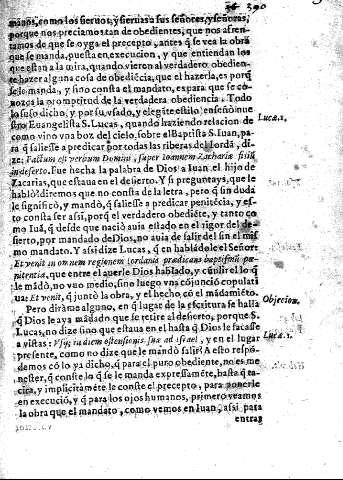 390
manos, como los sieruos, y sieruas a sus señores, y señoras,
porque nos preciamos tan de obedientes, que nos afren-
tamos de que se oyga el precepto, antes q̃ se vea la obra
que se manda, puesta en execucion, y que entiendan los
que estan a la mira, quando vieren al verdadero obedien-
te hazer alguna cosa de obediẽcia, que el hazerla, es porq̃
se le manda, y sino consta el mandato, es para que se co-
nozca la promptitud de la verdadera obediencia. Todo
lo suso dicho, y por su vsado, y elegãte estilo enseño nue
stro Euangelista S. Lucas, quando haziendo relacion de
como vino vna boz del cielo, sobre el Baptista S. Iuan, pa-
ra q̃ saliesse a predicar por todas las riberas del Iordã, di-
ze: Factum est verbum Domini, super Ioannem Zachariæ filiũ
in deserto. Fue hecha la palabra de Dios a Iuan el hijo de
Zacarias, que estaua en el desierto. Y si preguntays, que le
hablò? diremos que no consta de la letra, pero q̃ sin duda
le significó, y mandò, q̃ saliesse a predicar penitẽcia, y es-
to consta ser assi, porq̃ el verdadero obediẽte, y tanto co
mo Iuã, q̃ desde que naciò auia estado en el rigor del de-
sierto, por mandato de Dios, no auia de salir del sin el mis
mo mandato. Y assi dize Lucas, q̃ en hablãdole el Señor:
Et venit in omnem regionem Iordanis prædicans baptismũ pœ-
nitentiæ, que entre el auerle Dios hablado, y cũplir el lo q̃
le mãdò, no vuo medio, sino luego vna cõjunciõ copulati
ua: Et venit, q̃ juntò la obra, y el hecho cõ el mãdamiẽto.
Pero dirame alguno, en q̃ lugar de la escritura se halla
q̃ Dios le aya mãdado que se retire al desierto, porque S.
Lucas, no dize sino que estaua en el hasta q̃ Dios le sacasse
a vistas: Vsq; in diem ostensionis suæ ad Israel, y en el lugar
presente, como no dize que le mandò salir? A esto respõ-
demos cõ lo ya dicho, q̃ para el puro obediente, no es me
nester, q̃ conste lo q̃ se le manda expressamẽte, basta q̃ ta-
cita, y implicitamẽte le conste el precepto, para ponerle
en execució, y q̃ para los ojos humanos, primero veamos
la obra que el mandato, como vemos en Iuan, assi para
entrag
Lucæ. 1.
Objecion.
Lucæ. 1.